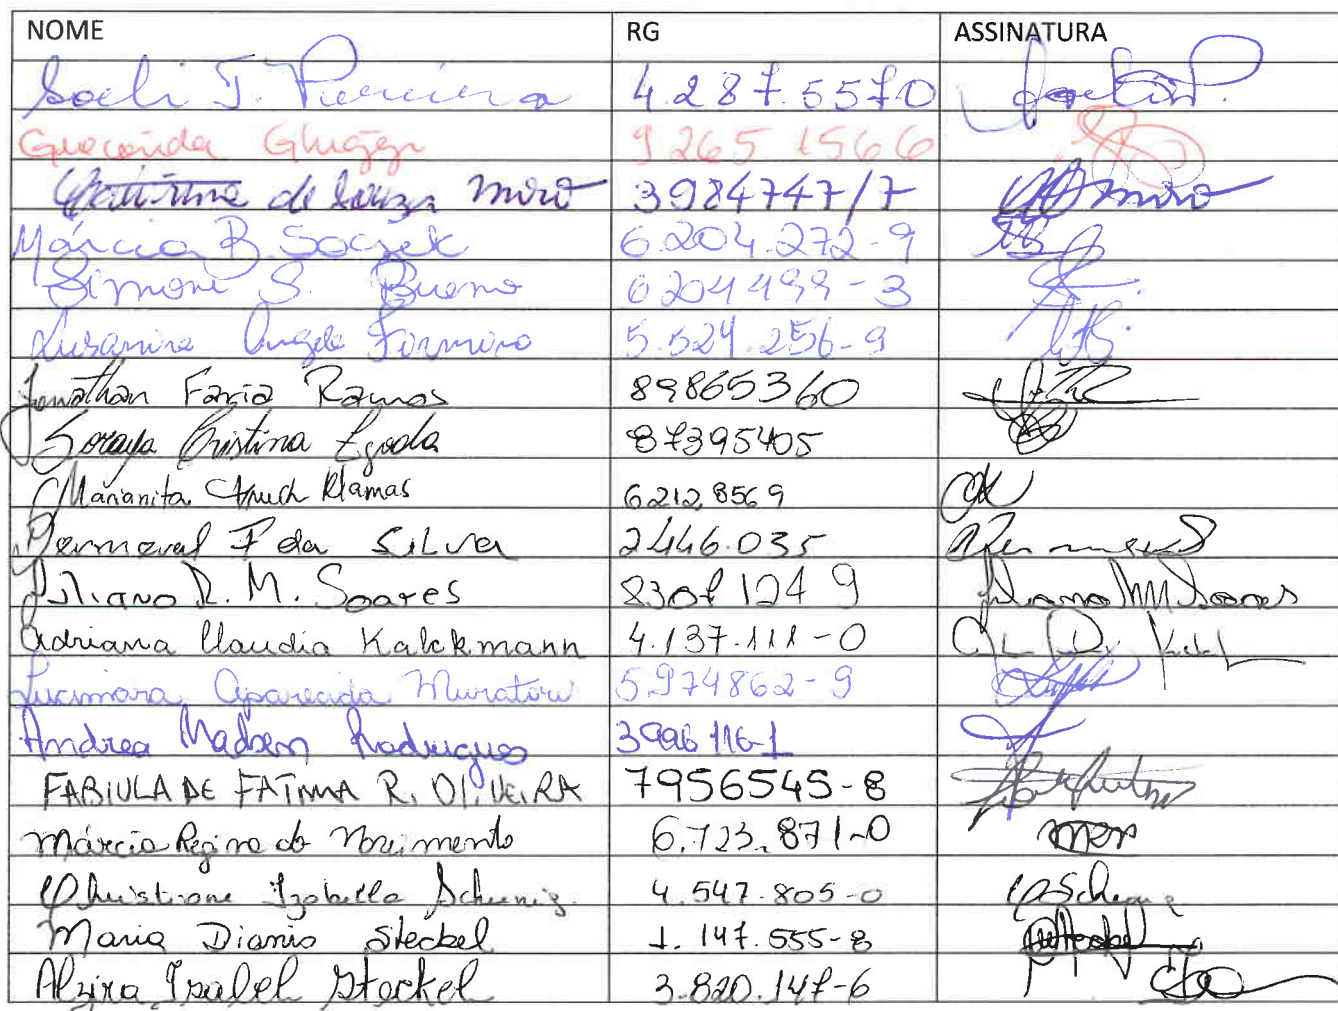 NOME RG ASSINATURA
Soeli T. Pereira 4.287.557-0
Gioconda Ghiggi 9265 1566
de Souza Miró 3984747/7 Miró
Márcia B. Soczek 6.204.272-9
Simone S. Bueno 6204499-3
Lusanira Angela Firmino 5.524.256-9
Jonathan Faria Ramos 89865360
Soraya Cristina Egoda 87395405
Marianita Llamas 62128569
Dermeval F da SiLva 2446.035
Juliano R. M. Soares 8301 124 9 Juliano RM Soares
Adriana Claudia Kalckmann 4.137.111-0
Lucimara Aparecida Muratori 5.974862-9
Andrea Madsen Rodrigues 3996116-1
FABIULA DE FATIMA R. OLIVEIRA 7956545-8
Márcia Regina do Nascimento 6.723.871-0 MRN
Christiane Izabella Schunig 4.547.805-0
Maria Dianis Steckel 1.147.555-8
Alzira Isabel Steckel 3.820.147-6